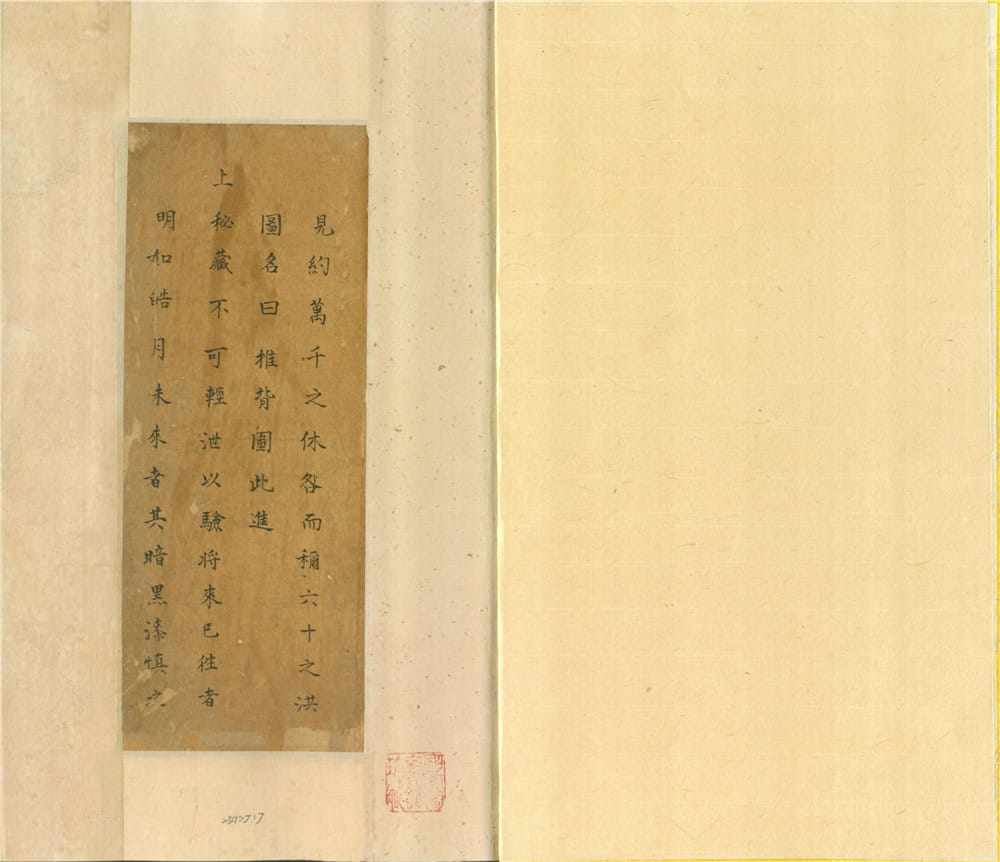 見約萬千之休咎而稱六十之洪
圖名曰推背圖此進
上秘藏不可輕泄以驗將來已往者
明如皓月未來者其暗黑漆慎之